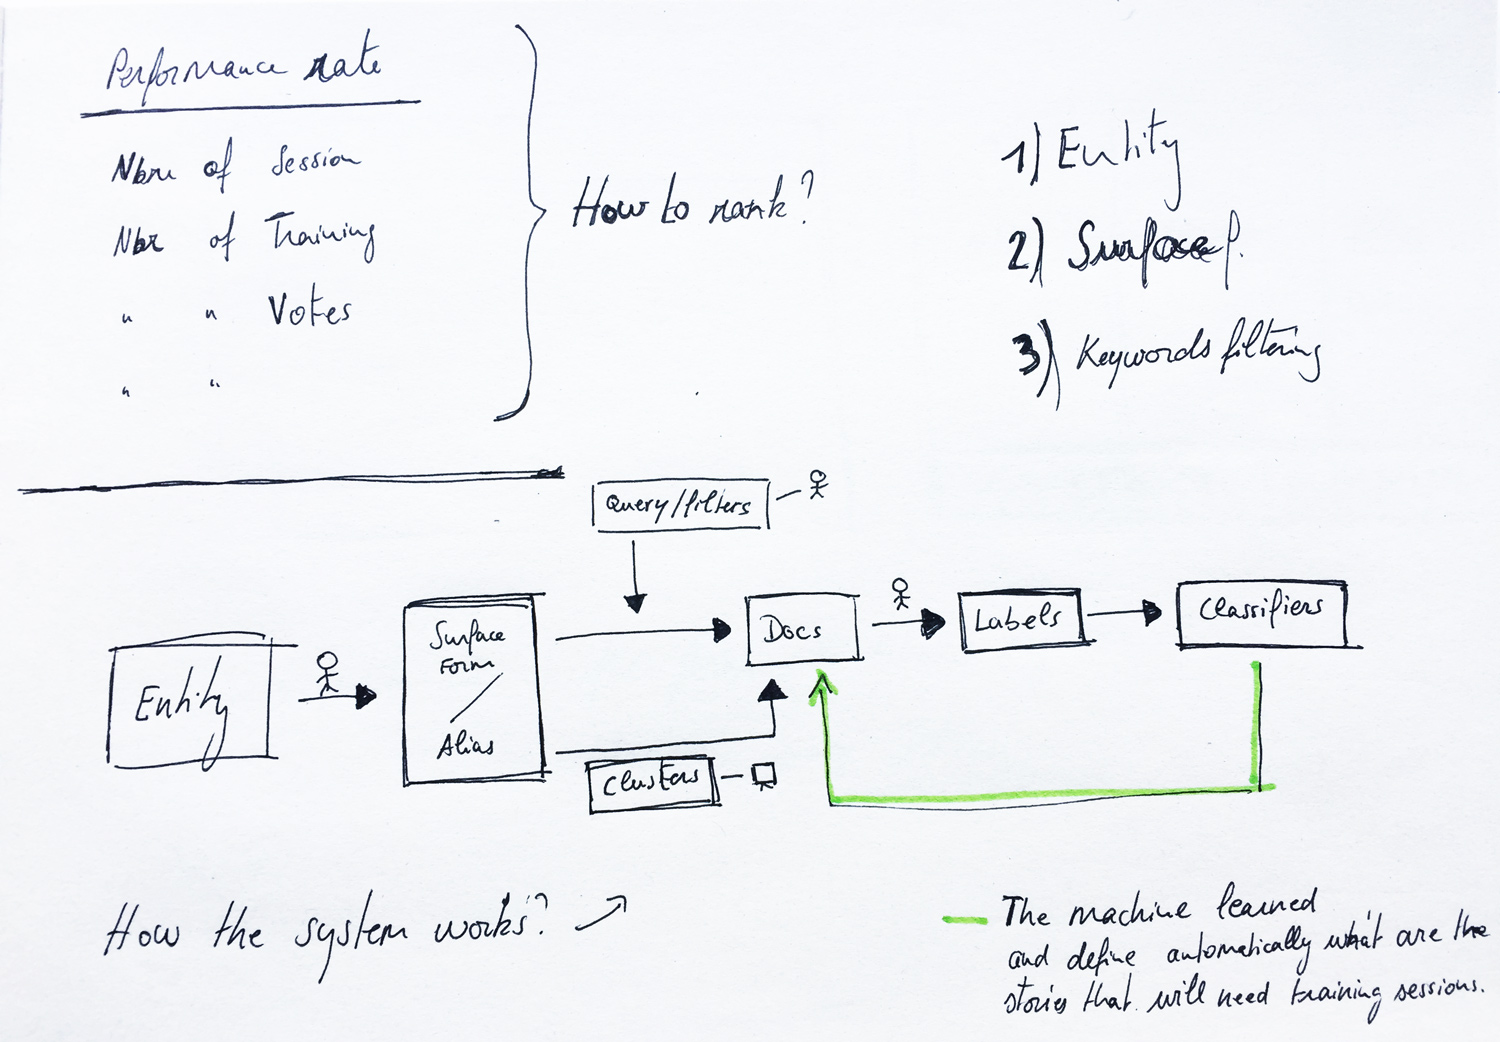 Performance rate
Nbre of Session
Nbr of Training
" " Votes
" "
How to rank?
1) Entity
2) Surface f.
3) Keywords filtering
Query/filters
Entity
Surface
Form
/
Alias
Docs
Labels
Classifiers
Clusters
How the system works?
The machine learned
and define automatically what are the
stories that will need training sessions.